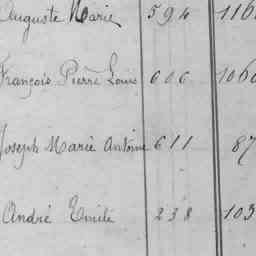 Auguste Marie 594 116
François Pierre Louis 606 106
Joseph Marie Antoine 611 87
André Emile 238 103